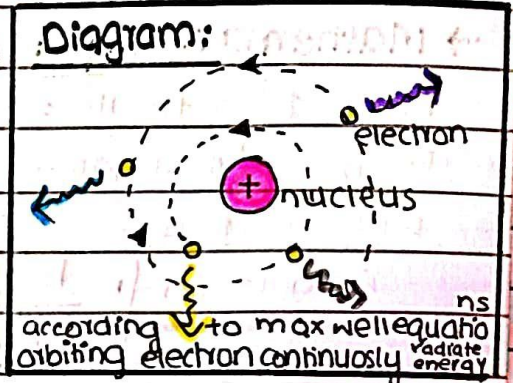 Diagram:
electron
+
nucleus
ns
according to maxwell equatio
orbiting electron continuosly radiate
energy